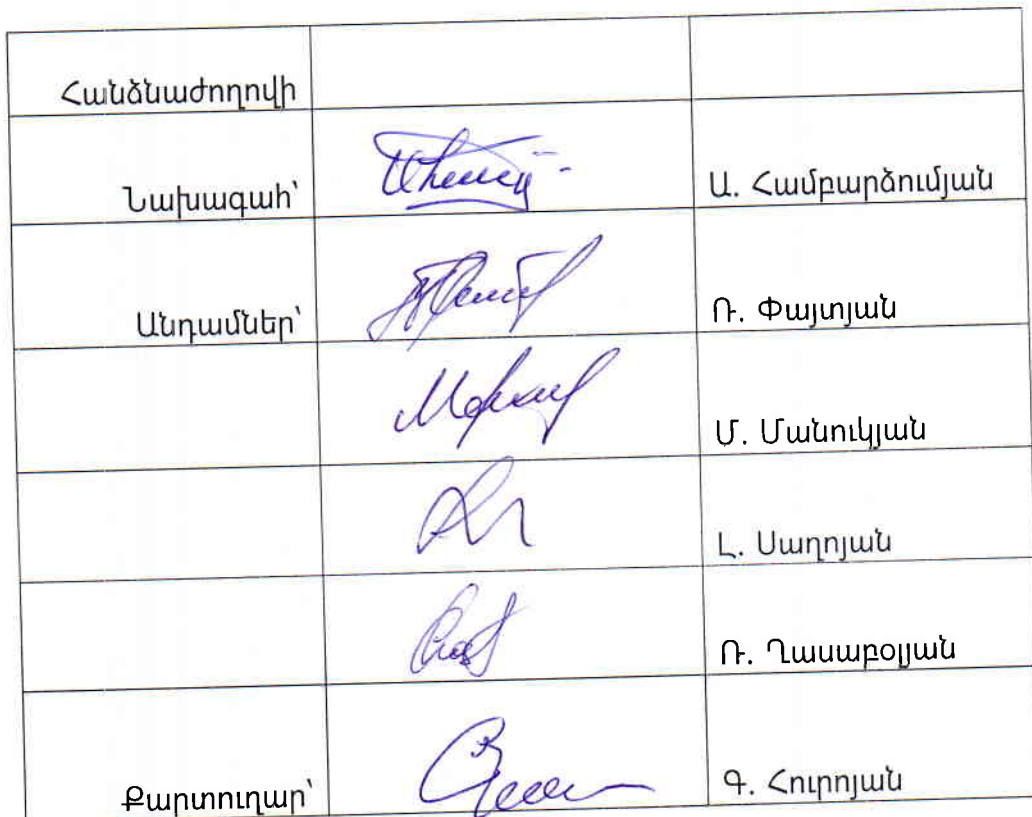 Հանձնաժողովի
Նախագահ՝ Ա. Համբարձումյան
Անդամներ՝ Ռ. Փայտյան
Մ. Մանուկյան
Լ. Սաղոյան
Ռ. Ղասաբօլյան
Քարտուղար՝ Գ. Հուրոյան